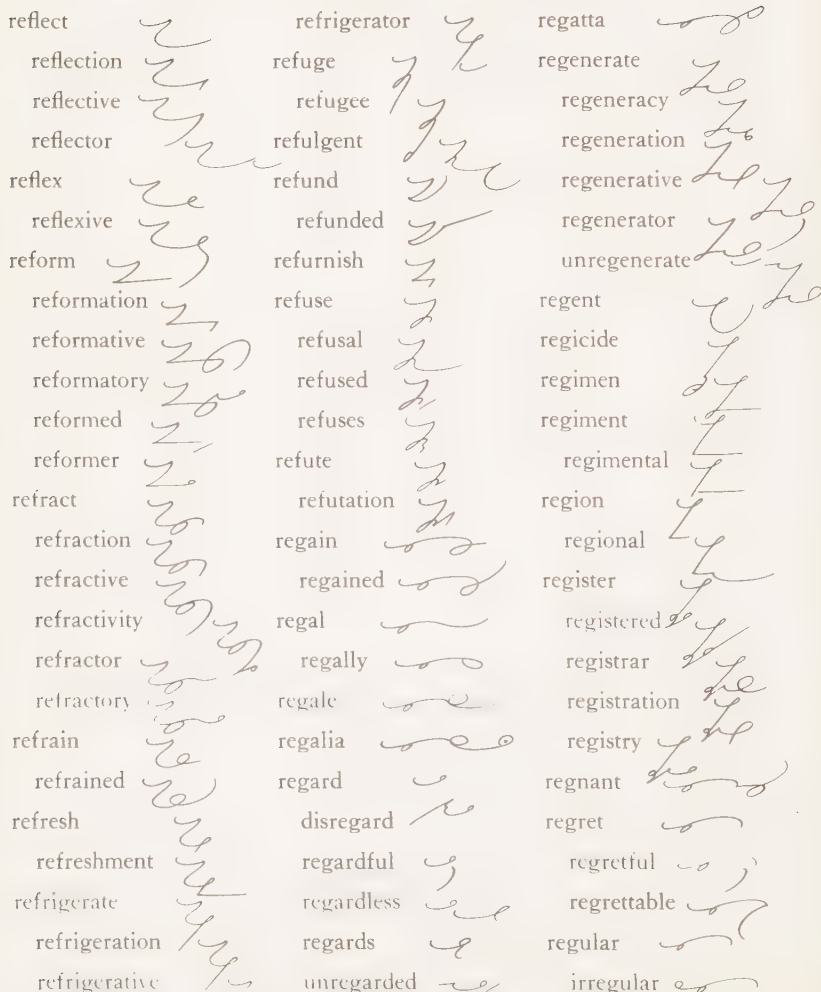 reflect
reflection
reflective
reflector
reflex
reflexive
reform
reformation
reformative
reformatory
reformed
reformer
refract
refraction
refractive
refractivity
refractor
refractory
refrain
refrained
refresh
refreshment
refrigerate
refrigeration
refrigerative
refrigerator
refuge
refugee
refulgent
refund
refunded
refurnish
refuse
refusal
refused
refuses
refute
refutation
regain
regained
regal
regally
regale
regalia
regard
disregard
regardful
regardless
regards
unregarded
regatta
regenerate
regeneracy
regeneration
regenerative
regenerator
unregenerate
regent
regicide
regimen
regiment
regimental
region
regional
register
registered
registrar
registration
registry
regnant
regret
regretful
regrettable
regular
irregular